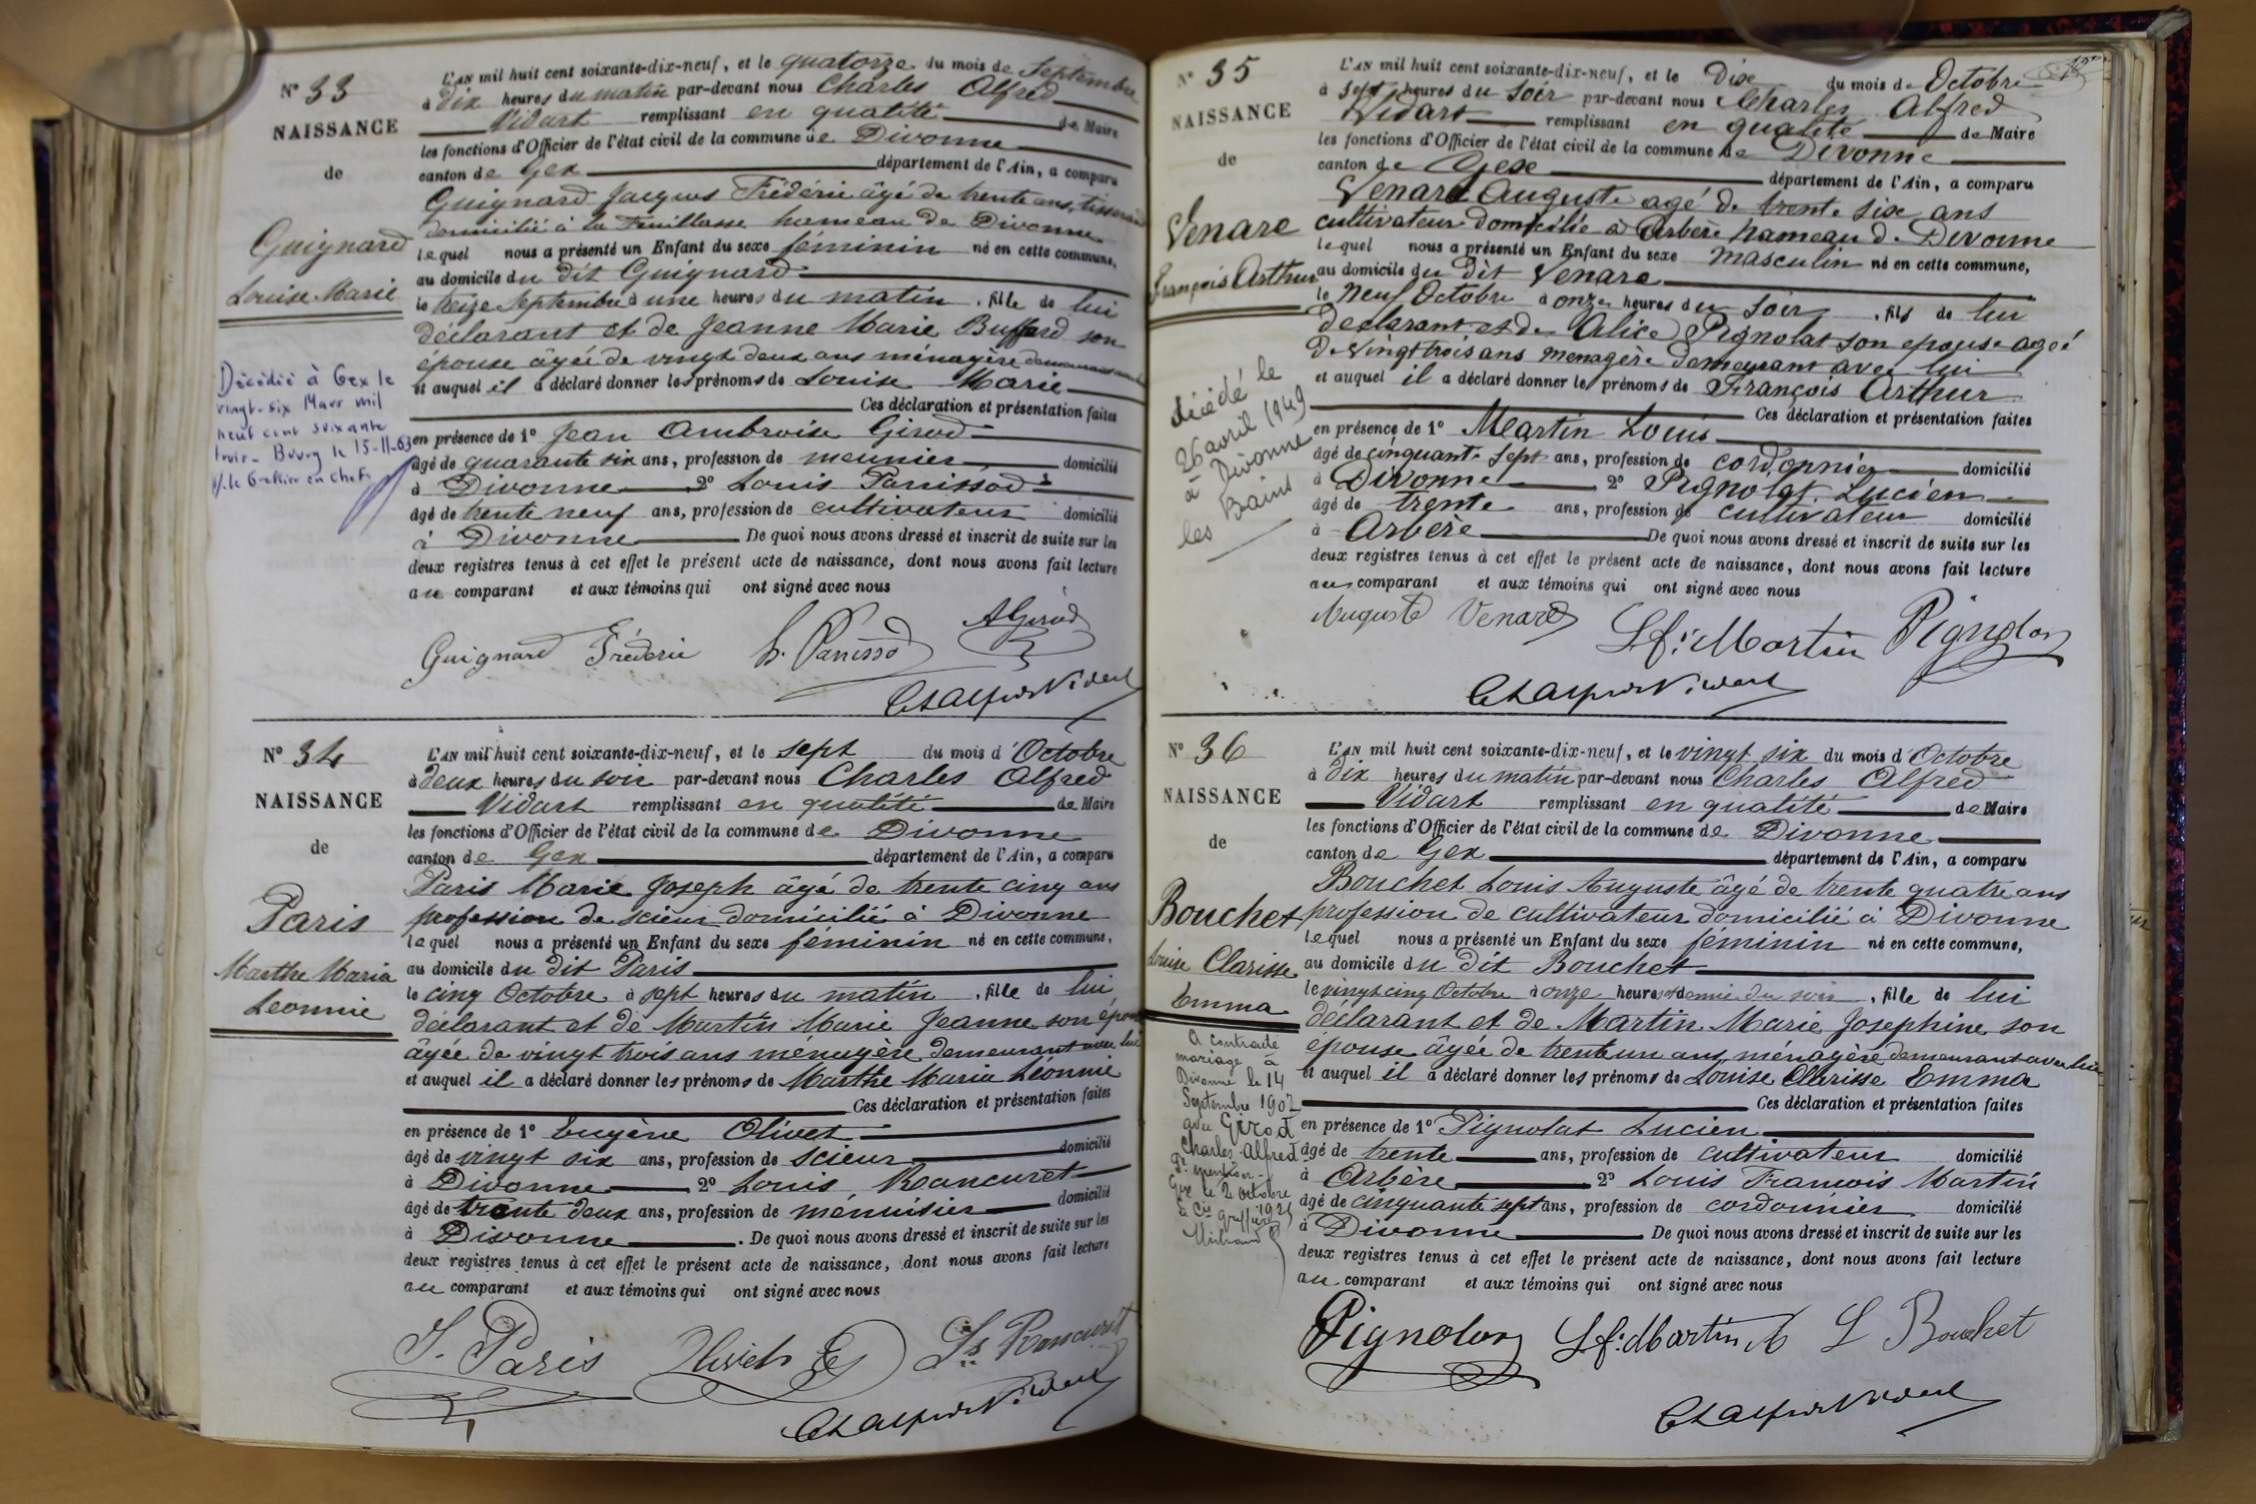 N° 33
NAISSANCE
de
Guignard
Louise Marie
Décédée à Gex le
vingt-six Mars mil
neuf cent soixante
trois - Bourg le 15-11-63
p/. le Greffier en Chef
L'AN mil huit cent soixante-dix-neuf, et le quatorze du mois de Septembre
à dix heures du matin par-devant nous Charles Alfred
Vidart remplissant en qualité de Maire
les fonctions d'Officier de l'état civil de la commune de Divonne
canton de Gex département de l'Ain, a comparu
Guignard Jacques Frédéric âgé de trente ans, tisserand
domicilié à la Feuillasse hameau de Divonne
lequel nous a présenté un Enfant du sexe féminin né en cette commune,
au domicile du dit Guignard
le treize Septembre à une heures du matin, fille de lui
déclarant et de Jeanne Marie Buffard son
épouse âgée de vingt deux ans ménagère demeurant
et auquel il a déclaré donner les prénoms de Louise Marie
Ces déclaration et présentation faites
en présence de 1° Jean Ambroise Girod
âgé de quarante six ans, profession de meunier domicilié
à Divonne 2° Louis Panissod
âgé de trente neuf ans, profession de cultivateur domicilié
à Divonne De quoi nous avons dressé et inscrit de suite sur les
deux registres tenus à cet effet le présent acte de naissance, dont nous avons fait lecture
au comparant et aux témoins qui ont signé avec nous
Guignard Fréderic L. Panissod A Girod
Ch Alfred Vidart
N° 34
NAISSANCE
de
Paris
Marthe Maria
Leonnie
L'AN mil huit cent soixante-dix-neuf, et le sept du mois d'Octobre
à deux heures du soir par-devant nous Charles Alfred
Vidart remplissant en qualité de Maire
les fonctions d'Officier de l'état civil de la commune de Divonne
canton de Gex département de l'Ain, a comparu
Paris Marie Joseph âgé de trente cinq ans
profession de scieur domicilié à Divonne
lequel nous a présenté un Enfant du sexe féminin né en cette commune,
au domicile du dit Paris
le cinq Octobre à sept heures du matin, fille de lui
déclarant et de Martin Marie Jeanne son épouse
âgée de vingt trois ans ménagère demeurant avec lui
et auquel il a déclaré donner les prénoms de Marthe Maria Léonnie
Ces déclaration et présentation faites
en présence de 1° Eugène Olivet
âgé de vingt six ans, profession de scieur domicilié
à Divonne 2° Louis Roncuret
âgé de trente deux ans, profession de ménuisier domicilié
à Divonne. De quoi nous avons dressé et inscrit de suite sur les
deux registres tenus à cet effet le présent acte de naissance, dont nous avons fait lecture
au comparant et aux témoins qui ont signé avec nous
J. Paris Olivet E Ls Roncuret
Ch Alfred Vidart
N° 35
NAISSANCE
de
Venare
François Arthur
décédé le
26 avril 1949
à Divonne
les Bains
L'AN mil huit cent soixante-dix-neuf, et le Dix du mois de Octobre
à sept heures du soir par-devant nous Charles Alfred
Vidart remplissant en qualité de Maire
les fonctions d'Officier de l'état civil de la commune de Divonne
canton de Gex département de l'Ain, a comparu
Venare Auguste agé de trente six ans
cultivateur domicilié à Arbère hameau de Divonne
lequel nous a présenté un Enfant du sexe masculin né en cette commune,
au domicile du dit Venare
le neuf Octobre à onze heures du soir, fils de lui
declarant et de Alice Pignolat son epouse agée
de vingt trois ans menagère demeurant avec lui
et auquel il a déclaré donner les prénoms de François Arthur
Ces déclaration et présentation faites
en présence de 1° Martin Louis
âgé de cinquante sept ans, profession de cordonnier domicilié
à Divonne 2° Pignolat Lucien
âgé de trente ans, profession de cultivateur domicilié
à Arbère De quoi nous avons dressé et inscrit de suite sur les
deux registres tenus à cet effet le présent acte de naissance, dont nous avons fait lecture
au comparant et aux témoins qui ont signé avec nous
Auguste Venare Ls fs Martin Pignolat
Ch Alfred Vidart
N° 36
NAISSANCE
de
Bouchet
Louise Clarisse
Emma
A contracté
mariage à
Divonne le 14
Septembre 1907
avec Girod
Charles Alfred
Pr mention
Gex le 2 octobre
1921
L'AN mil huit cent soixante-dix-neuf, et le vingt six du mois d'Octobre
à dix heures du matin par-devant nous Charles Alfred
Vidart remplissant en qualité de Maire
les fonctions d'Officier de l'état civil de la commune de Divonne
canton de Gex département de l'Ain, a comparu
Bouchet Louis Auguste âgé de trente quatre ans
profession de cultivateur domicilié à Divonne
lequel nous a présenté un Enfant du sexe féminin né en cette commune,
au domicile du dit Bouchet
le vingt cinq Octobre à onze heures et demie du soir, fille de lui
déclarant et de Martin Marie Josephine son
epouse âgée de trente un ans ménagère demeurant avec lui
et auquel il a déclaré donner les prénoms de Louise Clarisse Emma
Ces déclaration et présentation faites
en présence de 1° Pignolat Lucien
âgé de trente ans, profession de cultivateur domicilié
à Arbère 2° Louis François Martin
âgé de cinquante sept ans, profession de cordonnier domicilié
à Divonne De quoi nous avons dressé et inscrit de suite sur les
deux registres tenus à cet effet le présent acte de naissance, dont nous avons fait lecture
au comparant et aux témoins qui ont signé avec nous
Pignolat Ls fs Martin L Bouchet
Ch Alfred Vidart